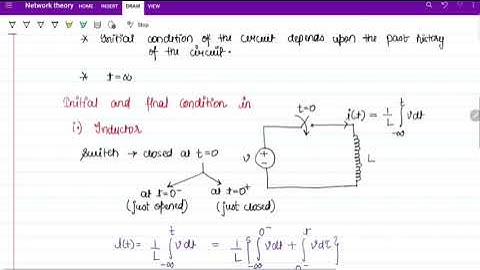 Network theory
HOME INSERT DRAW VIEW
Stop
* Initial condition of the circuit depends upon the past history
of the circuit.
* t=∞
Initial and final condition in
i) Inductor
Switch → closed at t=0
at t=0⁻ at t=0⁺
(just opened) (just closed)
t=0
i(t) = 1/L ∫_{-∞}^{t} vdt
V
+
−
L
i(t)= 1/L ∫_{-∞}^{t} vdt = 1/L { ∫_{-∞}^{0⁻} vdt + ∫_{0⁻}^{t} vdτ }